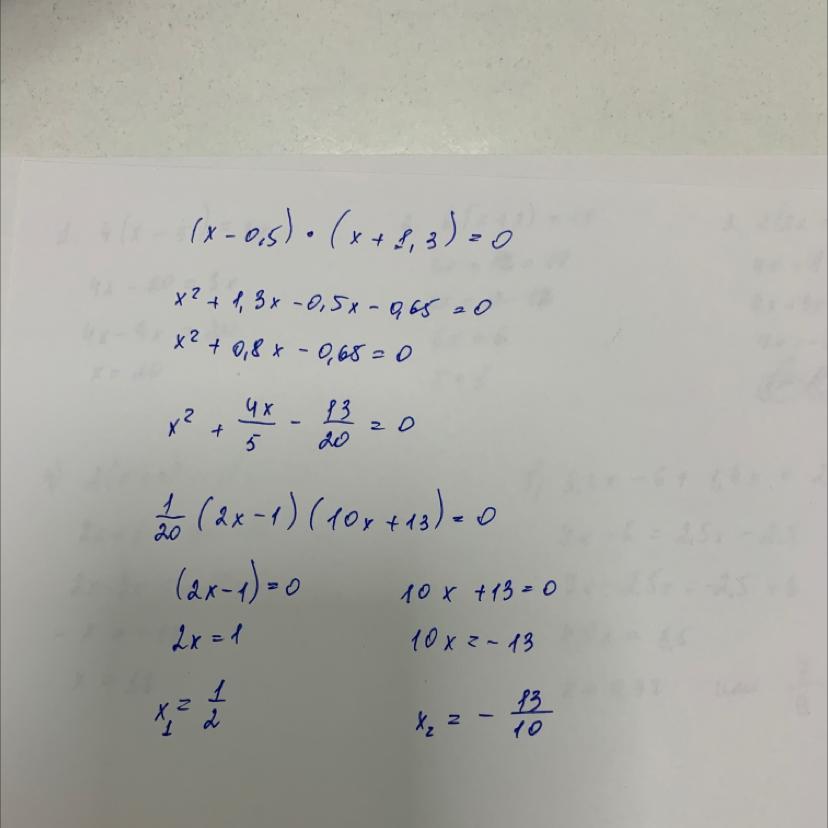 (x - 0,5) · (x + 1,3) = 0
x² + 1,3x - 0,5x - 0,65 = 0
x² + 0,8x - 0,65 = 0
x² + 4x/5 - 13/20 = 0
1/20 (2x - 1) (10x + 13) = 0
(2x - 1) = 0 10x + 13 = 0
2x = 1 10x = - 13
x₁ = 1/2 x₂ = - 13/10